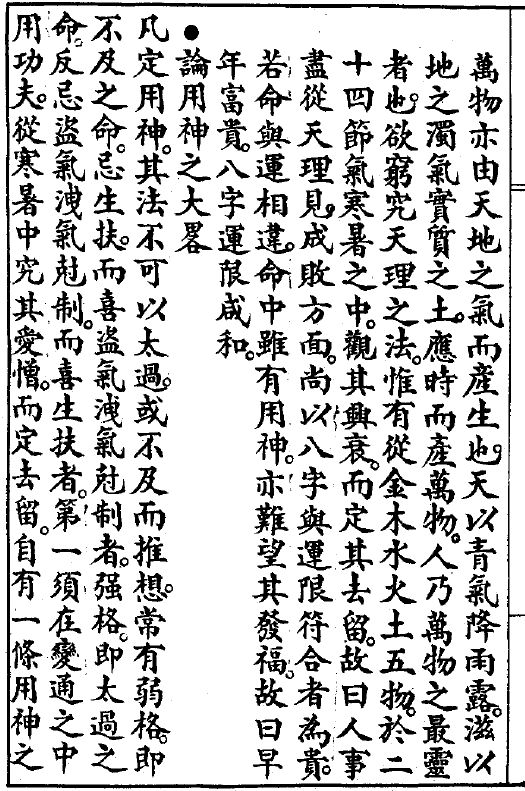 萬物亦由天地之氣而產生也。天以青氣降雨露。滋以
地之濁氣實質之土。應時而產萬物。人乃萬物之最靈
者也。欲窮究天理之法。惟有從金木水火土五物。於二
十四節氣寒暑之中。觀其興衰。而定其去留。故曰人事
盡從天理見。成敗方面。尚以八字與運限符合者為貴。
若命與運相違。命中雖有用神。亦難望其發福。故曰早
年富貴。八字運限咸和。
●論用神之大畧
凡定用神。其法不可以太過。或不及而推想。常有弱格。即
不及之命。忌生扶。而喜盜氣洩氣尅制者。强格。即太過之
命。反忌盜氣洩氣尅制。而喜生扶者。第一須在變通之中
用功夫。從寒暑中究其愛憎。而定去留。自有一條用神之